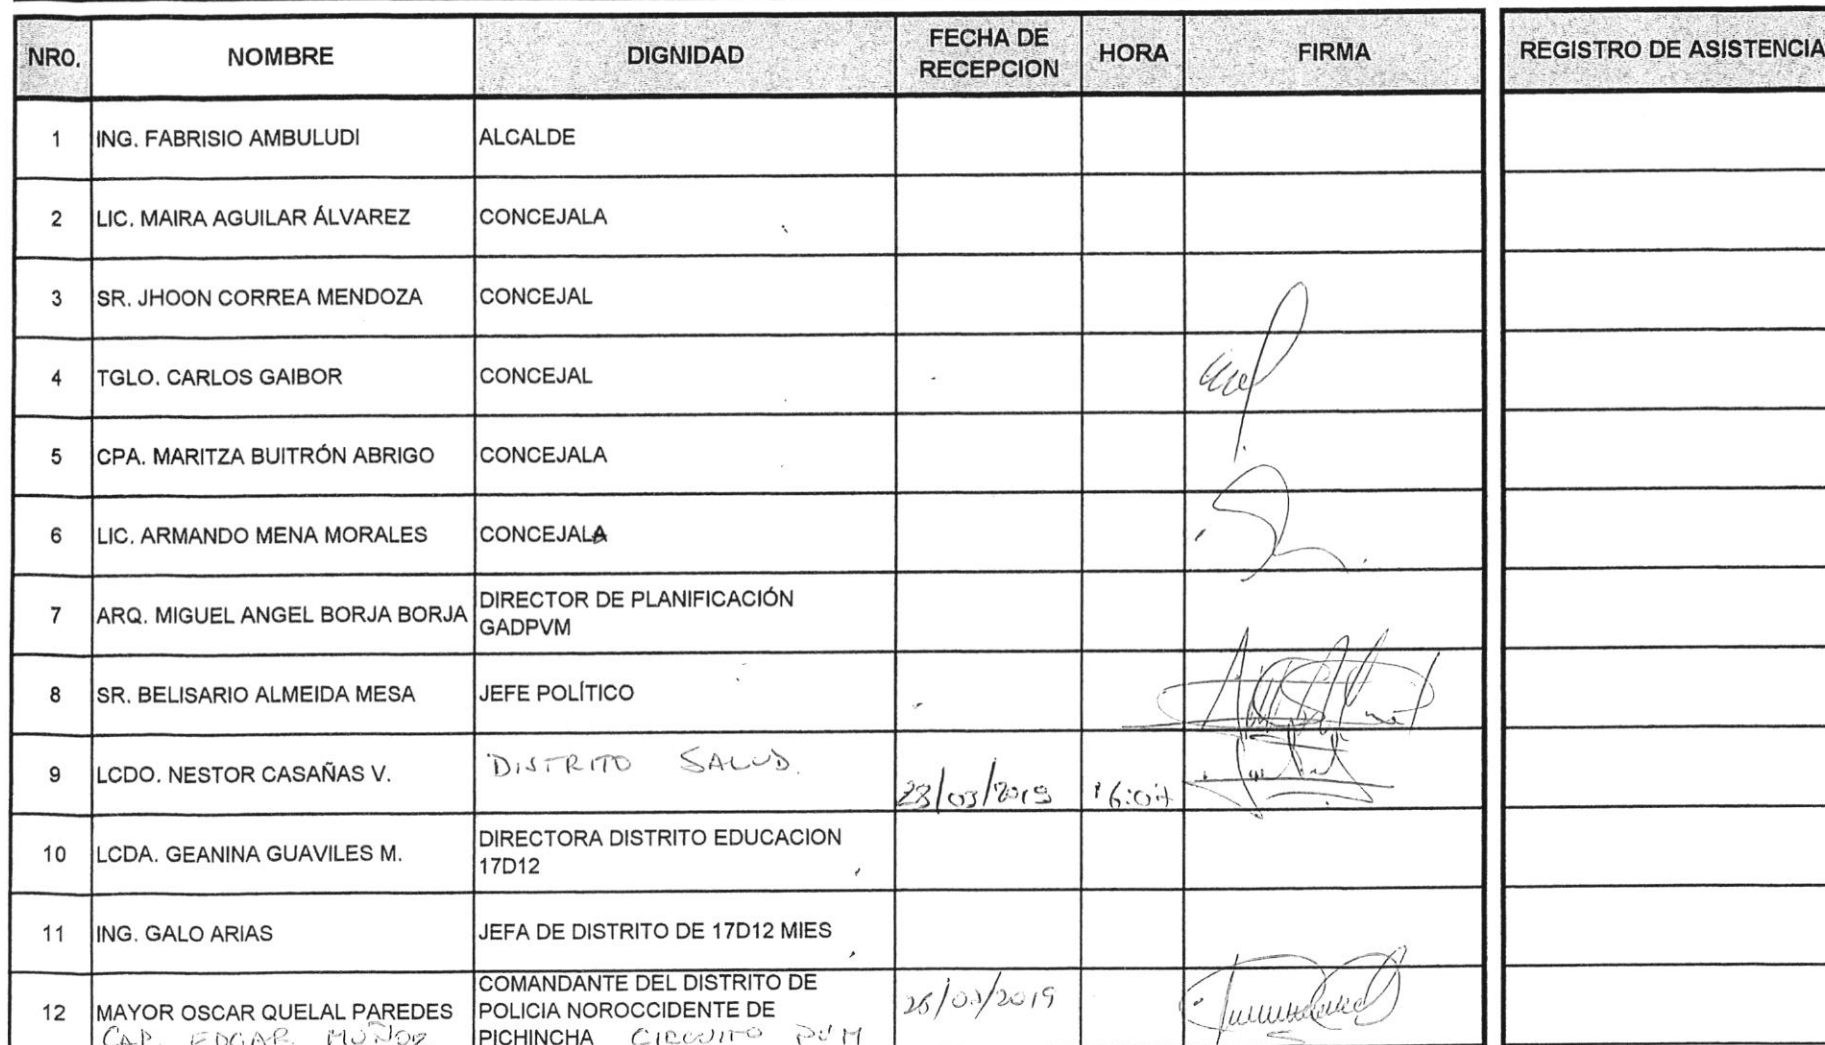 NRO. NOMBRE DIGNIDAD FECHA DE RECEPCION HORA FIRMA REGISTRO DE ASISTENCIA
1 ING. FABRISIO AMBULUDI ALCALDE
2 LIC. MAIRA AGUILAR ÁLVAREZ CONCEJALA
3 SR. JHOON CORREA MENDOZA CONCEJAL
4 TGLO. CARLOS GAIBOR CONCEJAL
5 CPA. MARITZA BUITRÓN ABRIGO CONCEJALA
6 LIC. ARMANDO MENA MORALES CONCEJALA
7 ARQ. MIGUEL ANGEL BORJA BORJA DIRECTOR DE PLANIFICACIÓN
GADPVM
8 SR. BELISARIO ALMEIDA MESA JEFE POLÍTICO
9 LCDO. NESTOR CASAÑAS V. DISTRITO SALUD. 28/03/2019
10 LCDA. GEANINA GUAVILES M. DIRECTORA DISTRITO EDUCACION
17D12
11 ING. GALO ARIAS JEFA DE DISTRITO DE 17D12 MIES
12 MAYOR OSCAR QUELAL PAREDES
CAP. EDGAR MUÑOZ
COMANDANTE DEL DISTRITO DE
POLICIA NOROCCIDENTE DE
PICHINCHA CIRCUITO PVM